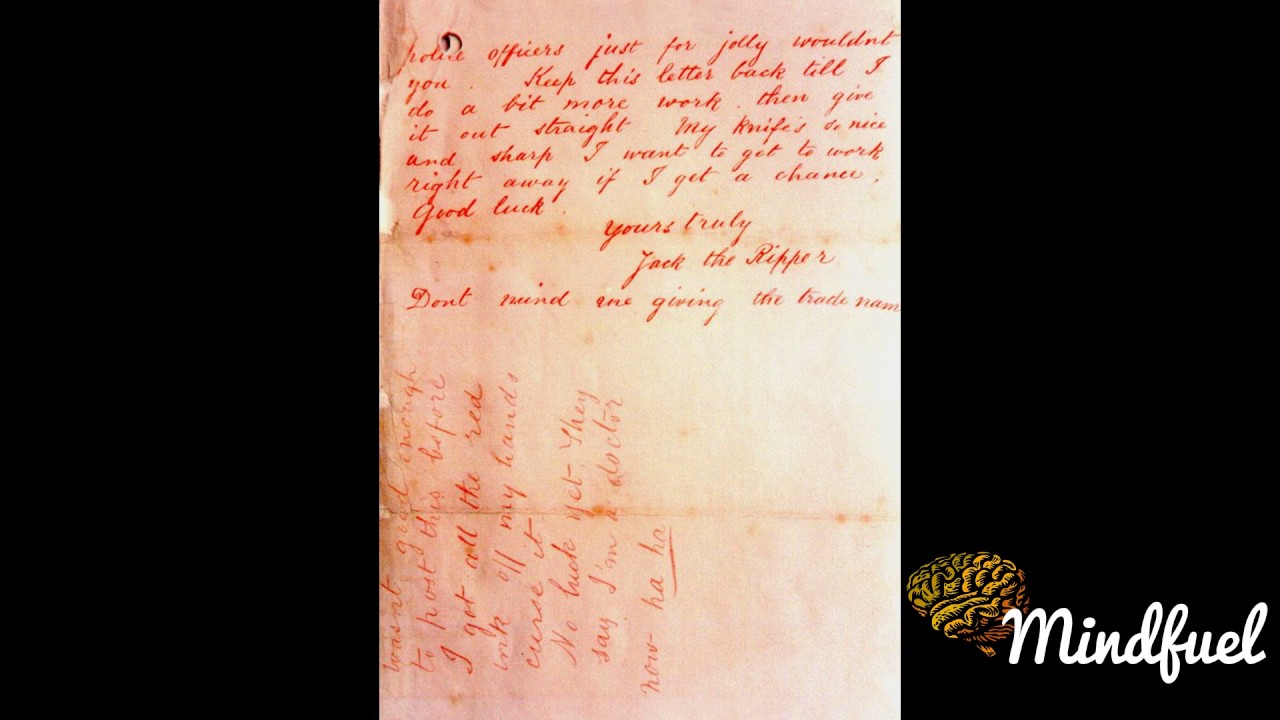 police officers just for jolly wouldnt
you. Keep this letter back till I
do a bit more work. then give
it out straight My knife's so nice
and sharp I want to get to work
right away if I get a chance.
Good luck.
yours truly
Jack the Ripper
Dont mind me giving the trade nam
wasnt good enough
to post this before
I got all the red
ink off my hands
curse it
No luck yet. They
say I'm a doctor
now ha ha
Mindfuel